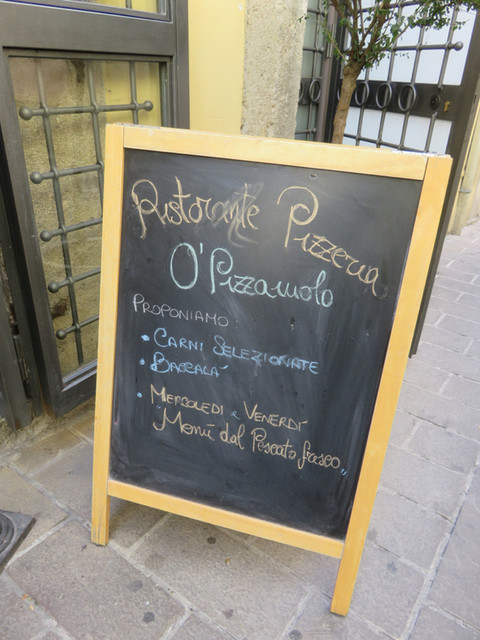 Ristorante Pizzeria
O' Pizzaiuolo
PROPONIAMO:
• CARNI SELEZIONATE
• BACCALA'
• MERCOLEDI e VENERDI'
"Menù dal Pescato fresco"